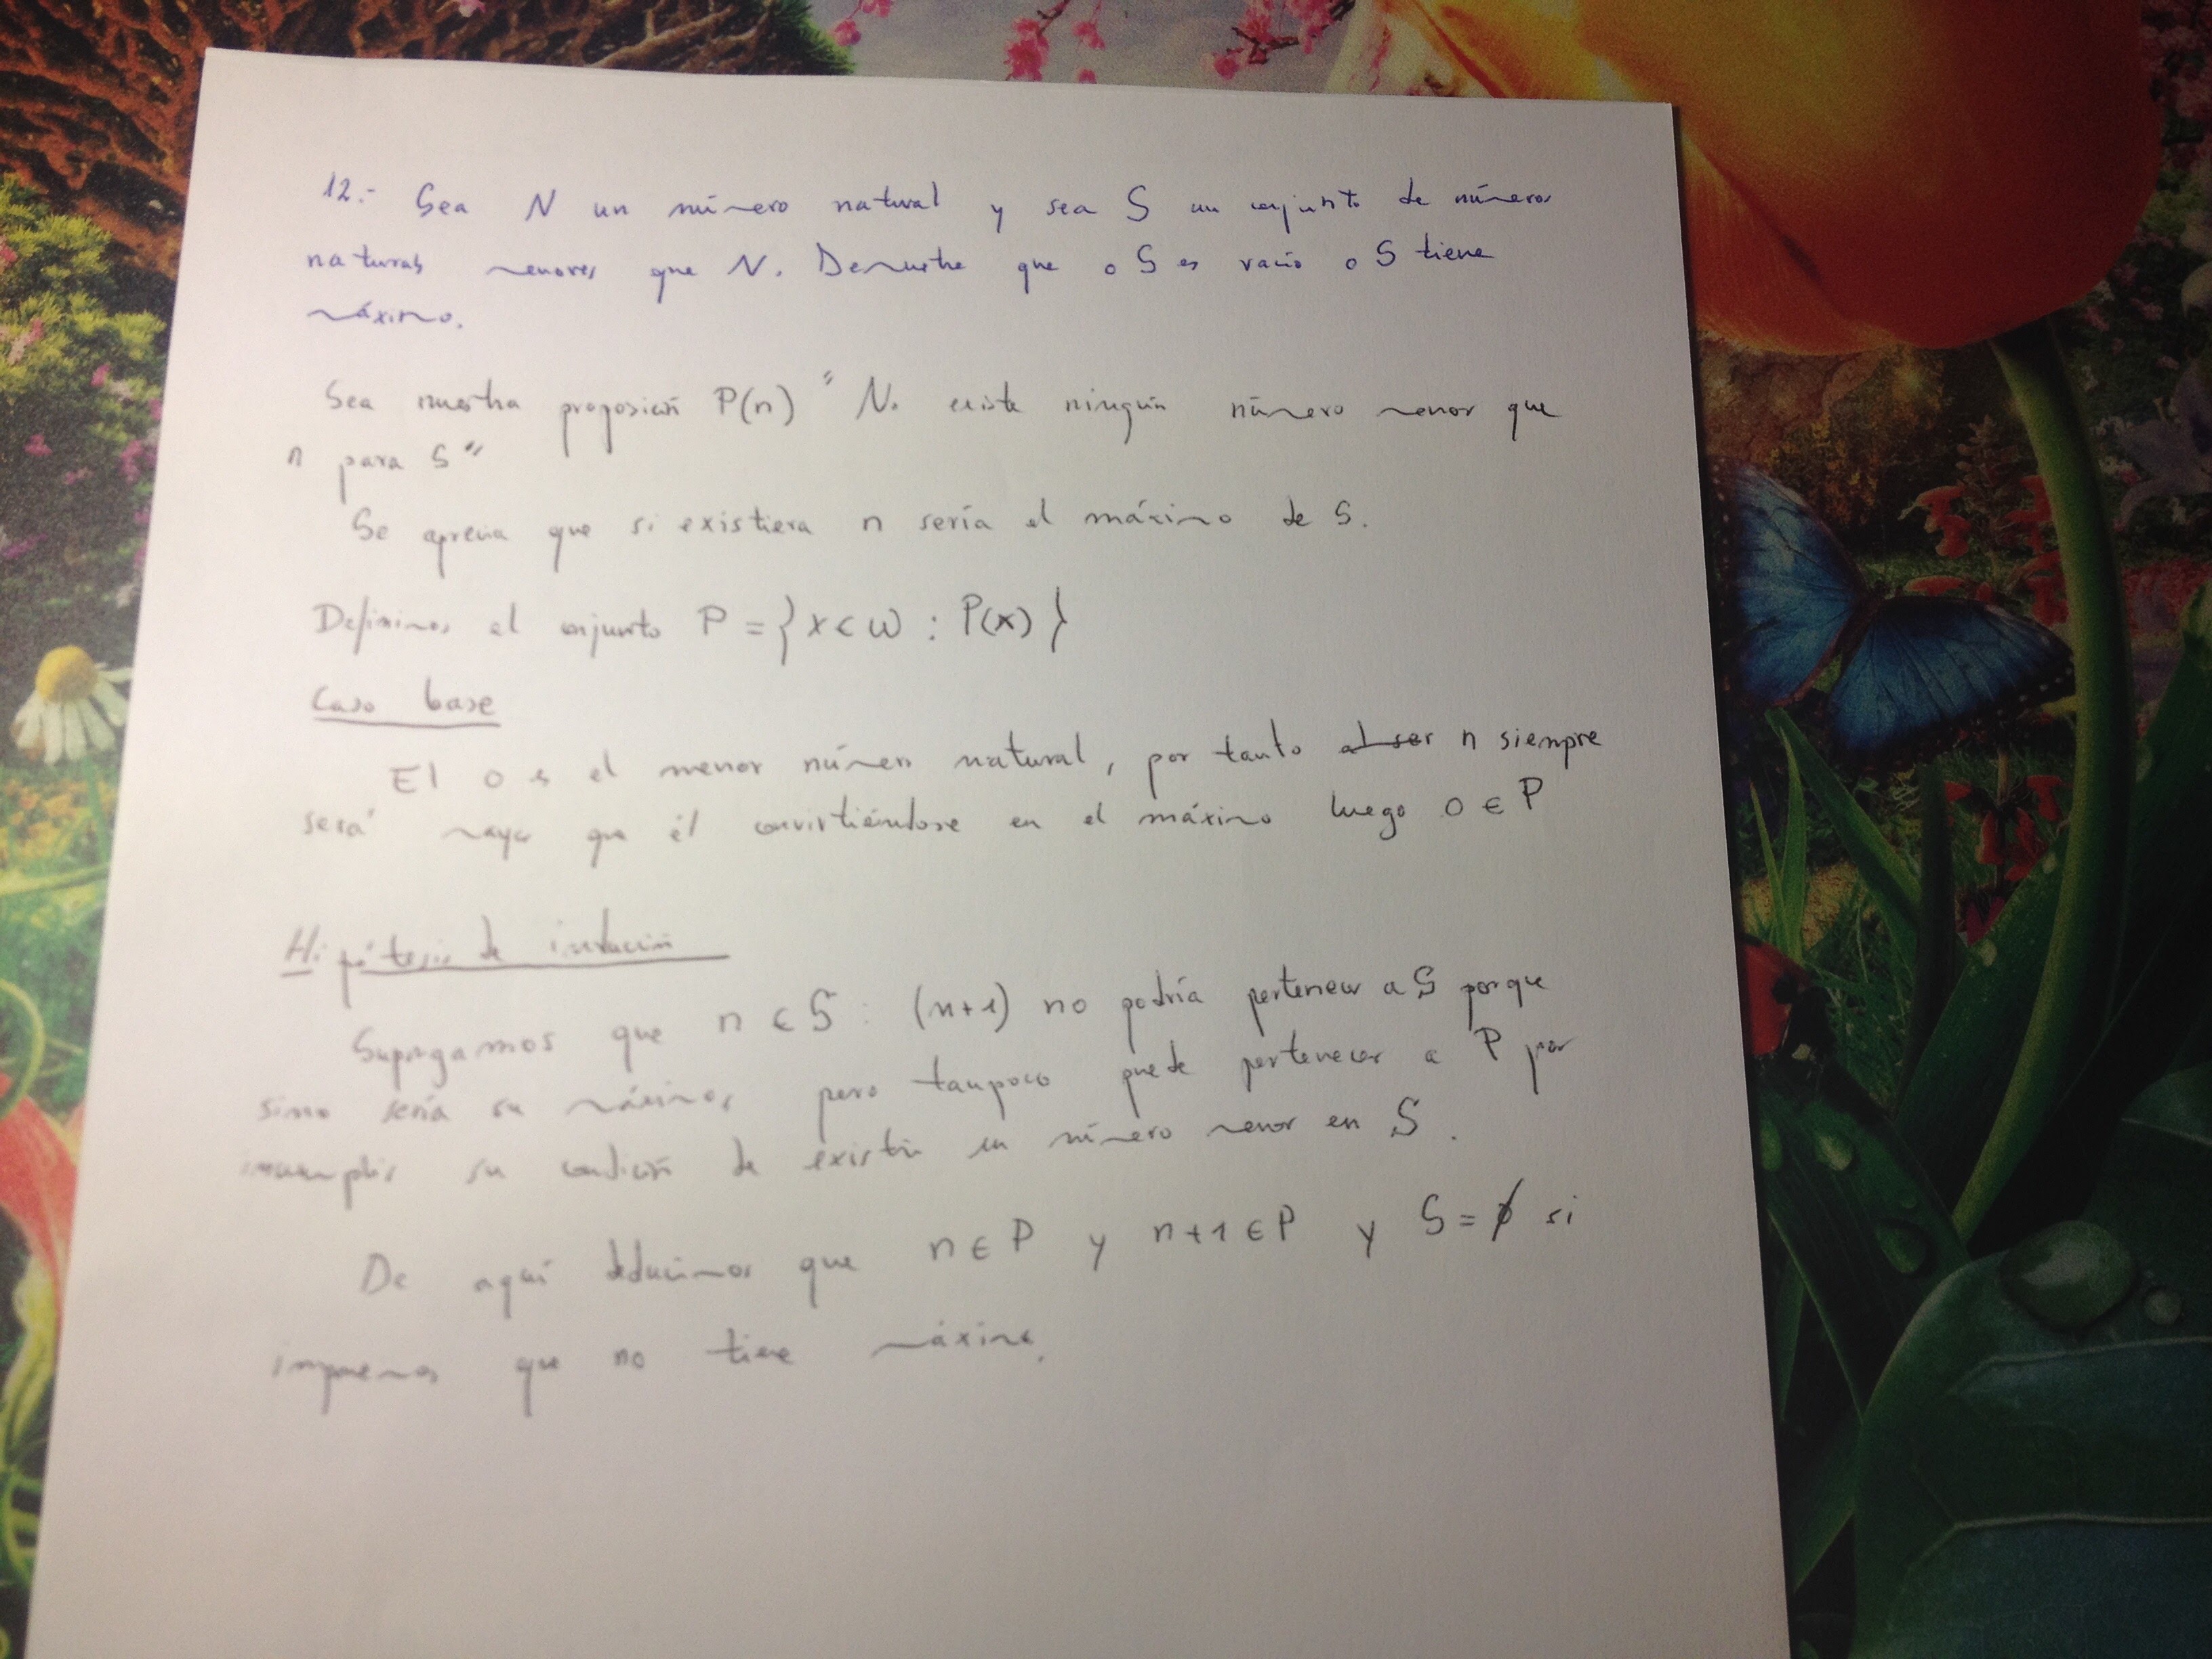 12.- Sea N un número natural y sea S un conjunto de números
naturales menores que N. Demuestre que o S es vacío o S tiene
máximo.
Sea nuestra proposición P(n) " No existe ningún número menor que
n para S "
Se aprecia que si existiera n sería el máximo de S.
Definimos el conjunto P = { x ∈ ω : P(x) }
Caso base
El 0 es el menor número natural, por tanto al ser n siempre
será mayor que él convirtiéndose en el máximo luego 0 ∈ P
Hipótesis de inducción
Supongamos que n ∈ S : (n+1) no podría pertenecer a S porque
sino sería su máximo, pero tampoco puede pertenecer a P por
incumplir su condición de existir un número menor en S.
De aquí deducimos que n ∈ P y n+1 ∈ P y S = ∅ si
imponemos que no tiene máximo.